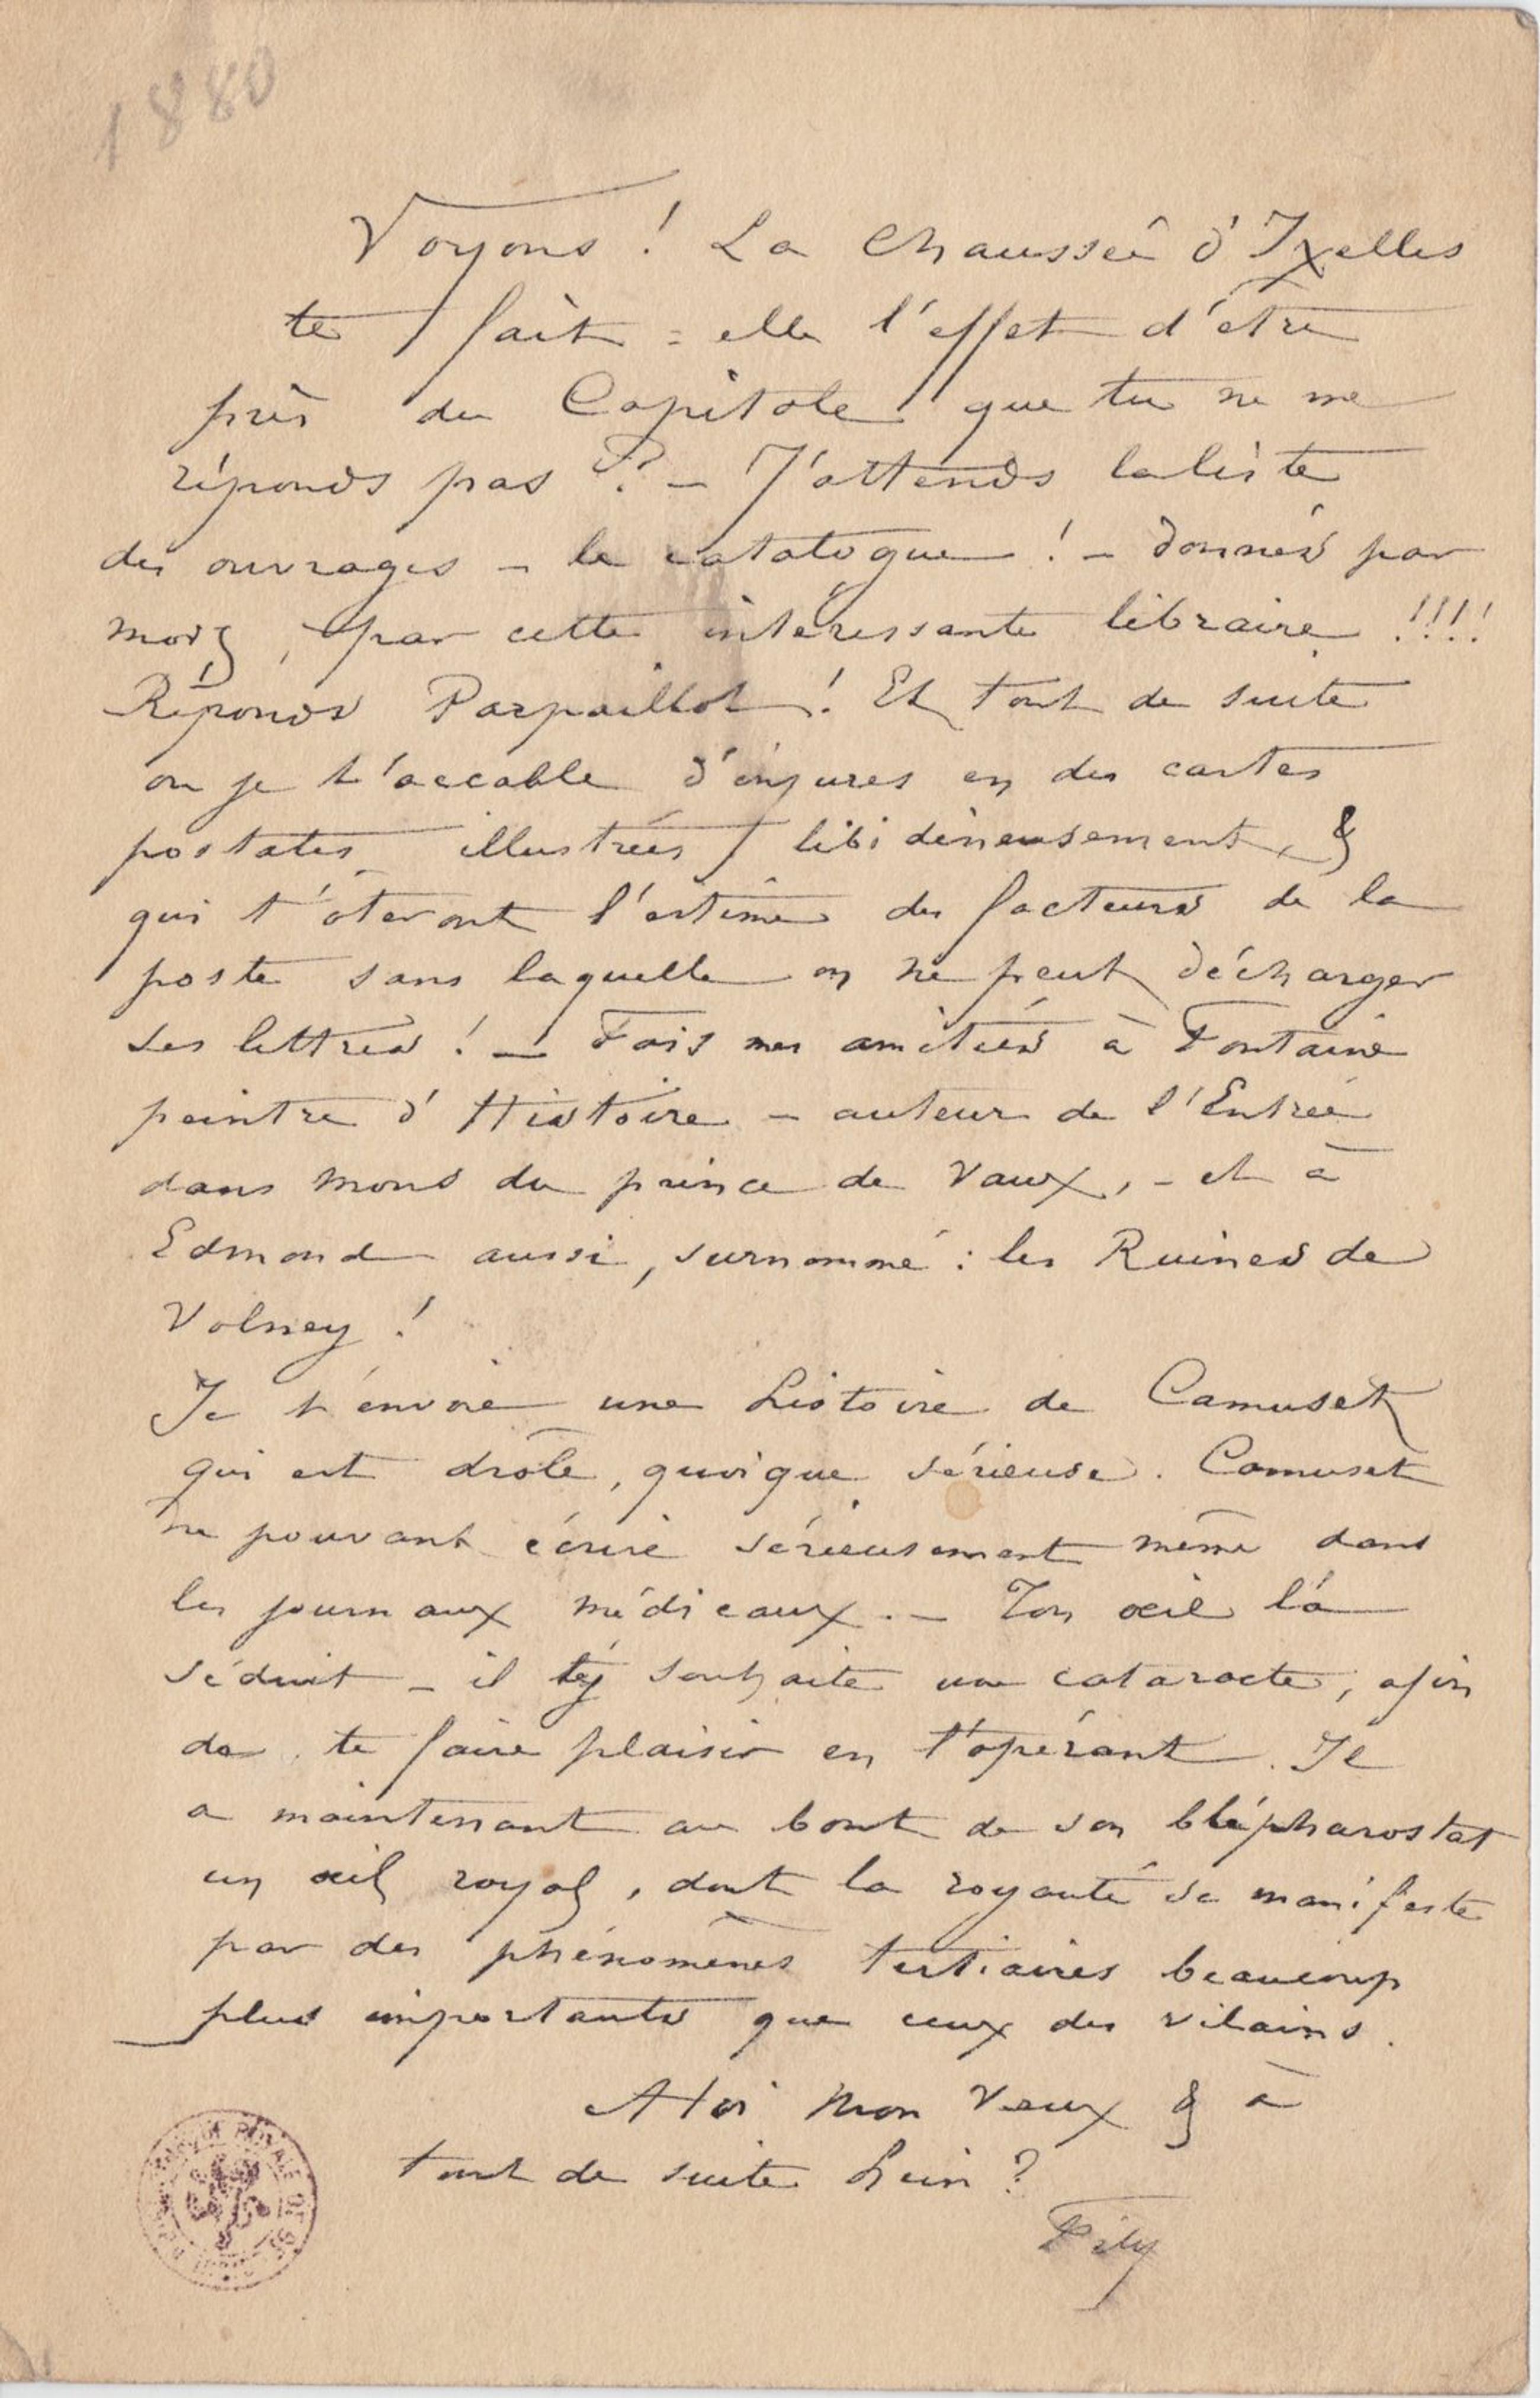 1880
Voyons ! La Chaussée d'Ixelles
te fait-elle l'effet d'être
près du Capitole que tu ne me
réponds pas ? – J'attends la liste
des ouvrages – le catalogue ! – donnés par
moi, par cette intéressante libraire !!!!
Réponds Parpaillot ! Et tout de suite
ou je t'accable d'injures en des cartes
postales illustrées libidineusement, &
qui t'ôteront l'estime des facteurs de la
poste sans laquelle on ne peut décharger
ses lettres ! – Fais mes amitiés à Fontaine
peintre d'Histoire – auteur de l'Entrée
dans Mons du prince de Vaux, – et à
Edmond aussi, surnommé : les Ruines de
Volney !
Je t'envoie une histoire de Camuset
qui est drôle, quoique sérieuse. Camuset
ne pouvant écrire sérieusement même dans
les journaux médicaux. – Ton oeil l'a
séduit – il t'y souhaite une cataracte, afin
de te faire plaisir en t'opérant. Il
a maintenant au bout de son blépharostat
un oeil royal, dont la royauté se manifeste
par des phénomènes tertiaires beaucoup
plus importants que ceux des vilains.
A toi mon Vieux & à
tout de suite hein ?
Fély